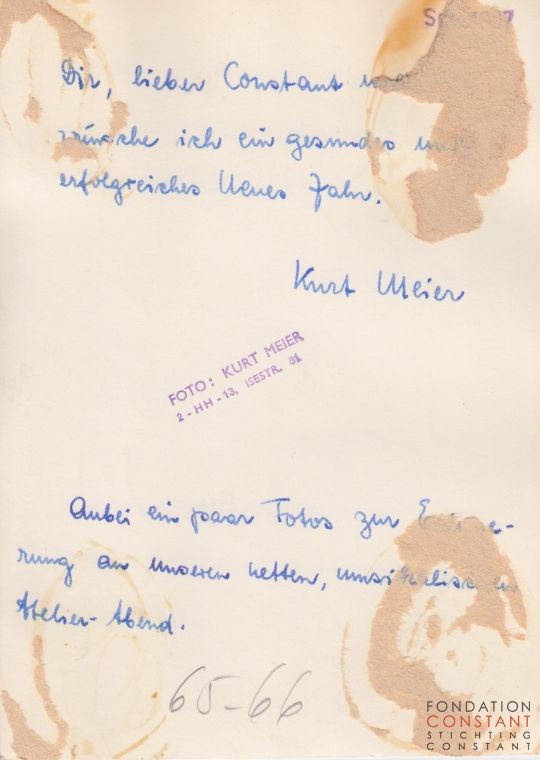 Dir, lieber Constant
wünsche ich ein gesundes und
erfolgreiches Neues Jahr.
Kurt Meier
FOTO: KURT MEIER
2-HH-13, ISESTR. 61
Anbei ein paar Fotos zur
rung an unseren netten,
Atelier-Abend.
65-66
FONDATION
CONSTANT
STICHTING
CONSTANT